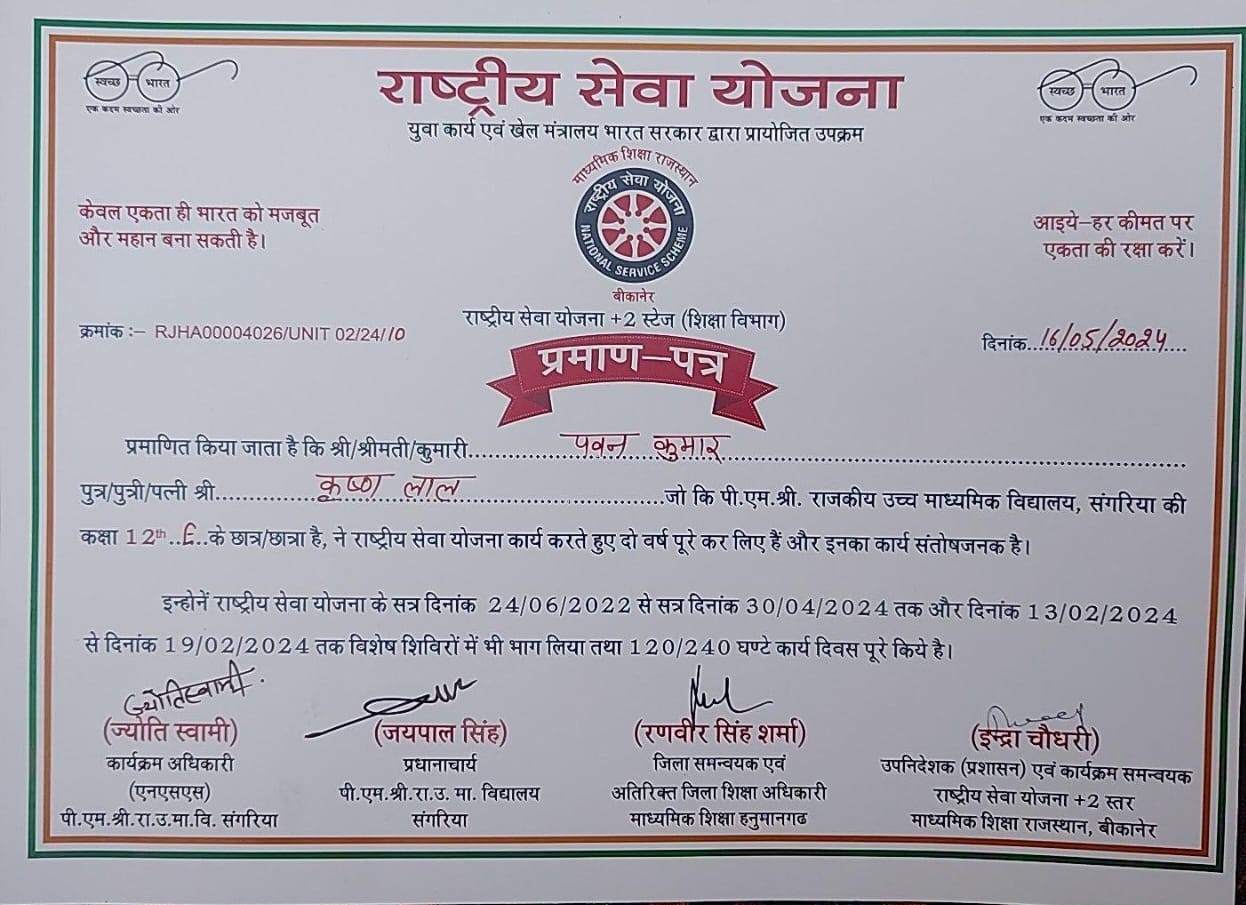 स्वच्छ भारत
एक कदम स्वच्छता की ओर
राष्ट्रीय सेवा योजना
स्वच्छ भारत
एक कदम स्वच्छता की ओर
युवा कार्य एवं खेल मंत्रालय भारत सरकार द्वारा प्रायोजित उपक्रम
माध्यमिक शिक्षा राजस्थान
राष्ट्रीय सेवा योजना
NATIONAL SERVICE SCHEME
बीकानेर
केवल एकता ही भारत को मजबूत
और महान बना सकती है।
आइये–हर कीमत पर
एकता की रक्षा करें।
राष्ट्रीय सेवा योजना +2 स्टेज (शिक्षा विभाग)
क्रमांक :– RJHA00004026/UNIT 02/24/10
दिनांक..16/05/2024....
प्रमाण–पत्र
प्रमाणित किया जाता है कि श्री/श्रीमती/कुमारी.......... पवन कुमार ..........
पुत्र/पुत्री/पत्नी श्री.......... कृष्ण लाल ..........जो कि पी.एम.श्री. राजकीय उच्च माध्यमिक विद्यालय, संगरिया की
कक्षा 12th..E..के छात्र/छात्रा है, ने राष्ट्रीय सेवा योजना कार्य करते हुए दो वर्ष पूरे कर लिए हैं और इनका कार्य संतोषजनक है।
इन्होनें राष्ट्रीय सेवा योजना के सत्र दिनांक 24/06/2022 से सत्र दिनांक 30/04/2024 तक और दिनांक 13/02/2024
से दिनांक 19/02/2024 तक विशेष शिविरों में भी भाग लिया तथा 120/240 घण्टे कार्य दिवस पूरे किये है।
ज्योतिस्वामी
(ज्योति स्वामी)
कार्यक्रम अधिकारी
(एनएसएस)
पी.एम.श्री.रा.उ.मा.वि. संगरिया
(जयपाल सिंह)
प्रधानाचार्य
पी.एम.श्री.रा.उ. मा. विद्यालय
संगरिया
(रणवीर सिंह शर्मा)
जिला समन्वयक एवं
अतिरिक्त जिला शिक्षा अधिकारी
माध्यमिक शिक्षा हनुमानगढ
(इन्द्रा चौधरी)
उपनिदेशक (प्रशासन) एवं कार्यक्रम समन्वयक
राष्ट्रीय सेवा योजना +2 स्तर
माध्यमिक शिक्षा राजस्थान, बीकानेर